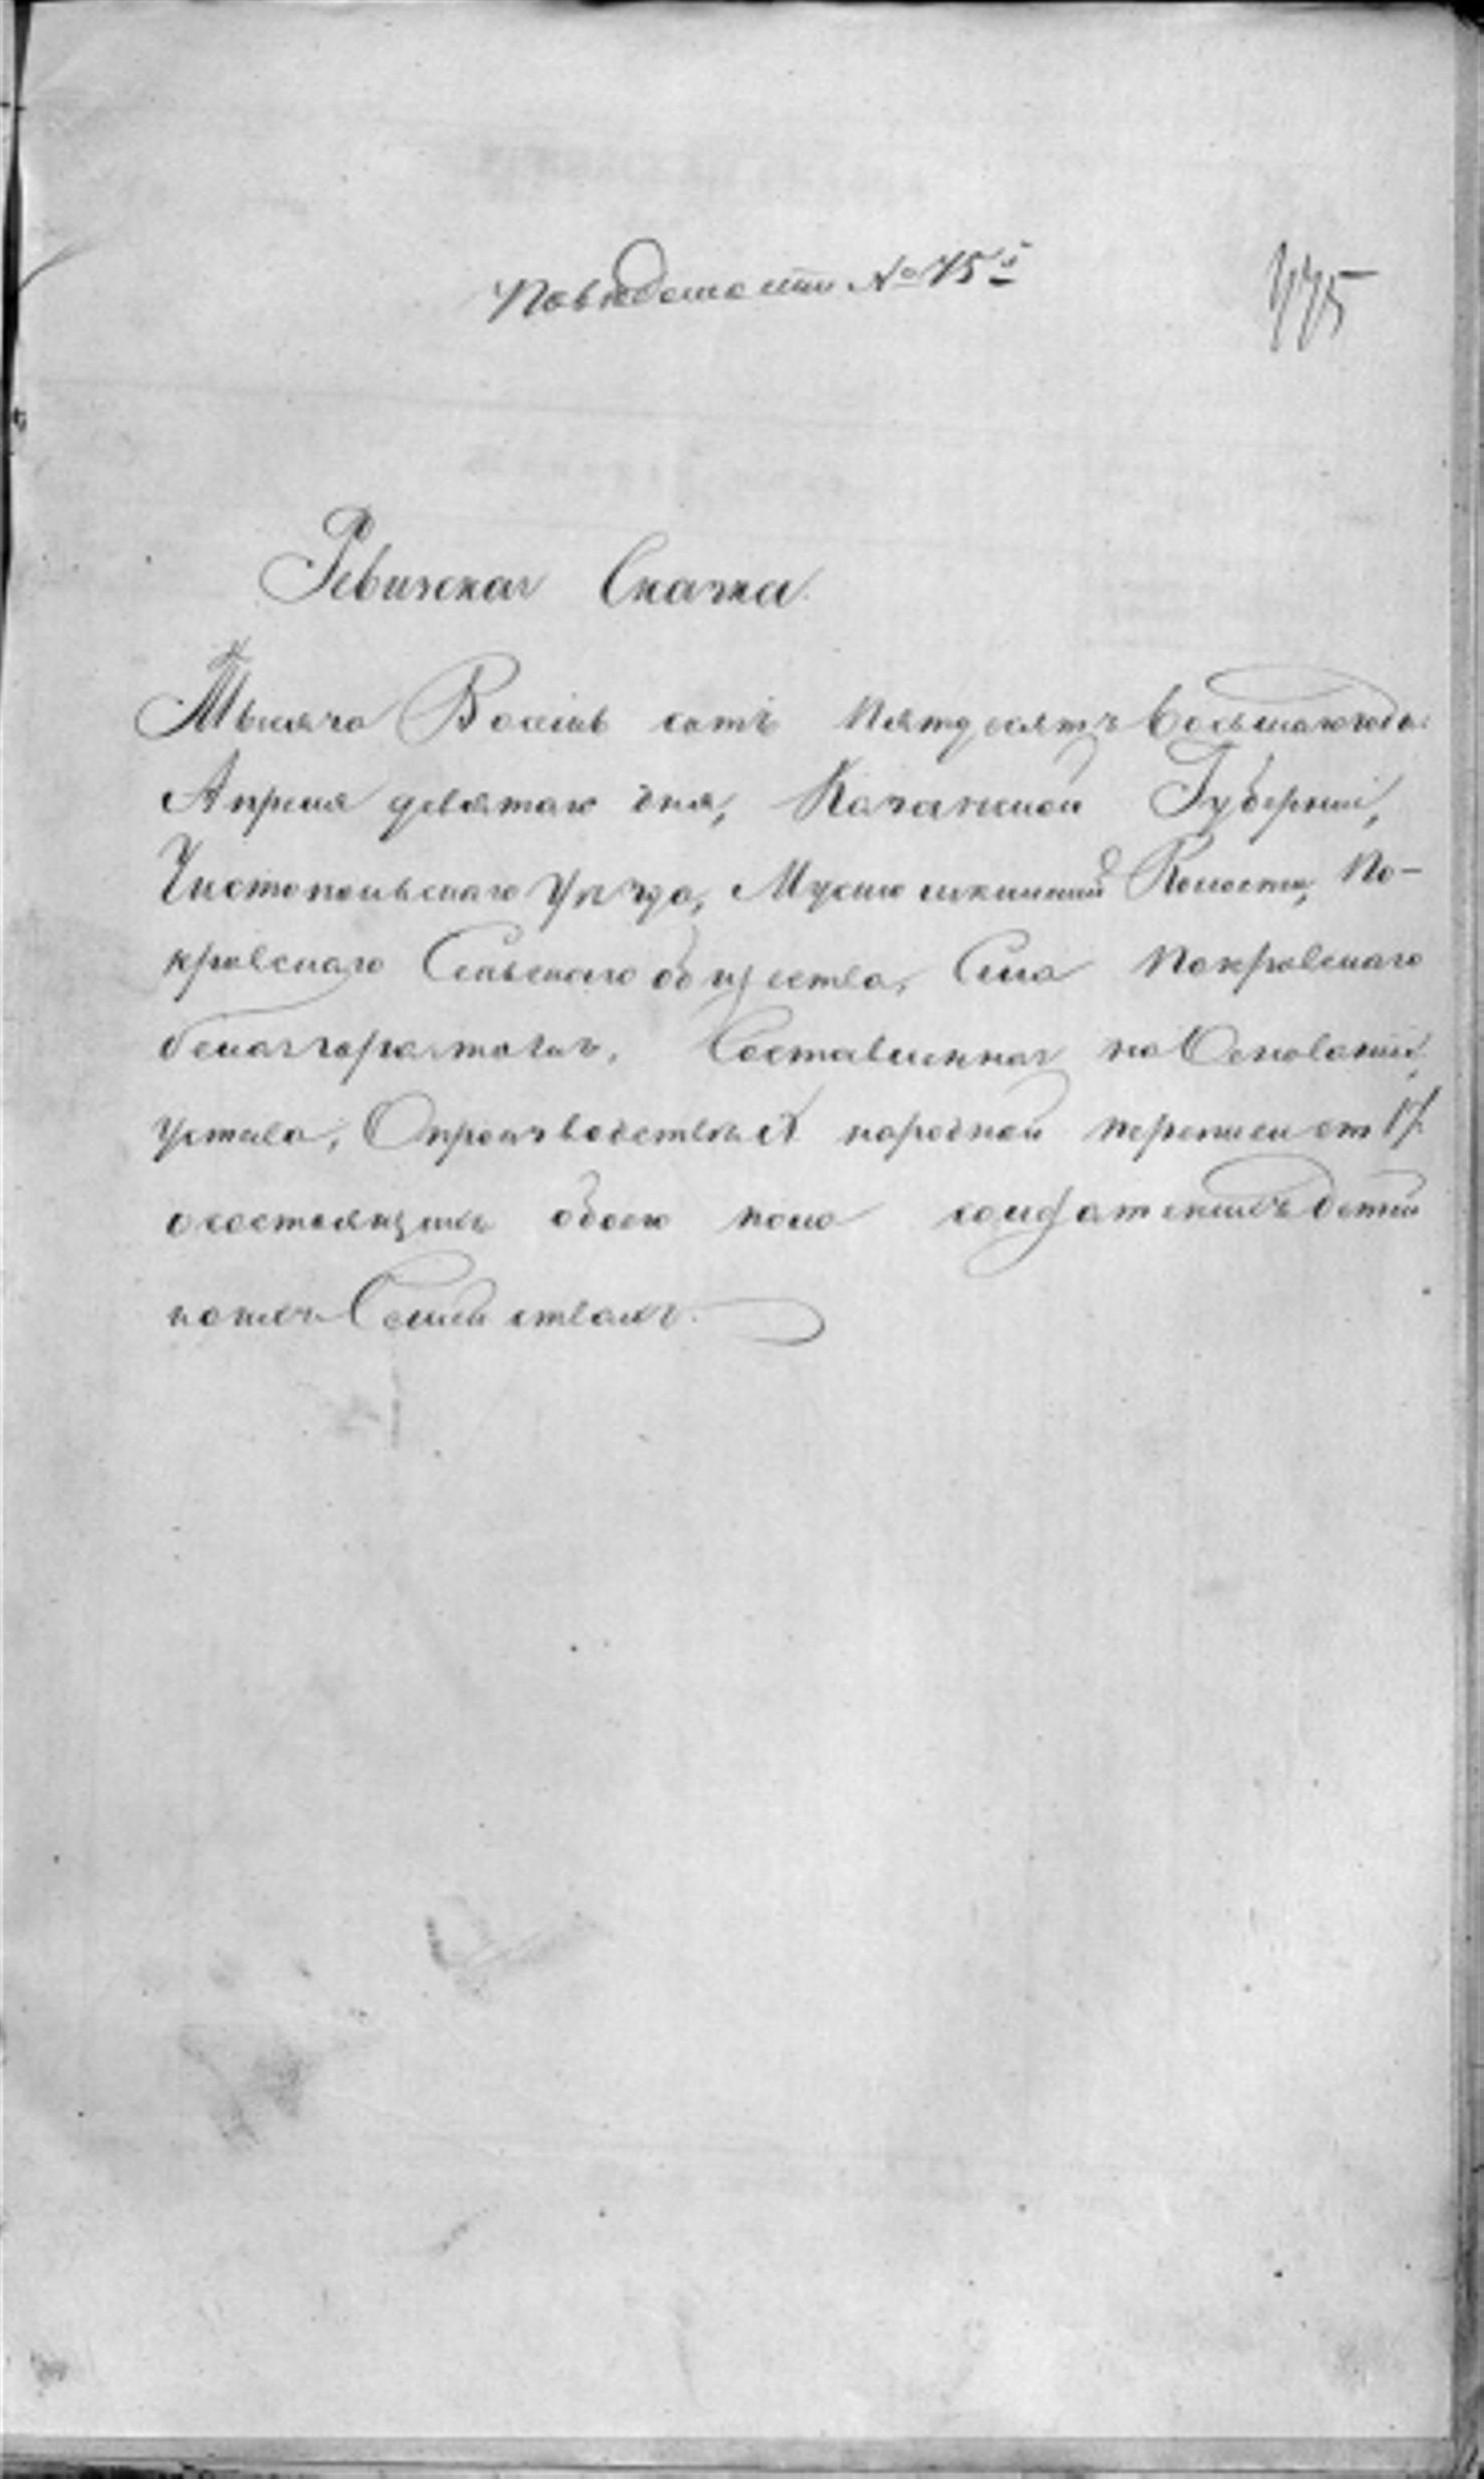 Поведомости № 75й
775
Ревизская Сказка.
Тысяча Восемь сотъ Пятдесятъ Восьмаго года
Апреля девятаго дня, Казанской Губернии,
Чистопольскаго Уезда, Волости, По-
кровскаго Сельскаго общества, Села Покровскаго
Составленная на Основании
Устава, О производстве X народной переписи
о состоящихъ обоего пола солдатскихъ детей
ихъ Семействахъ.